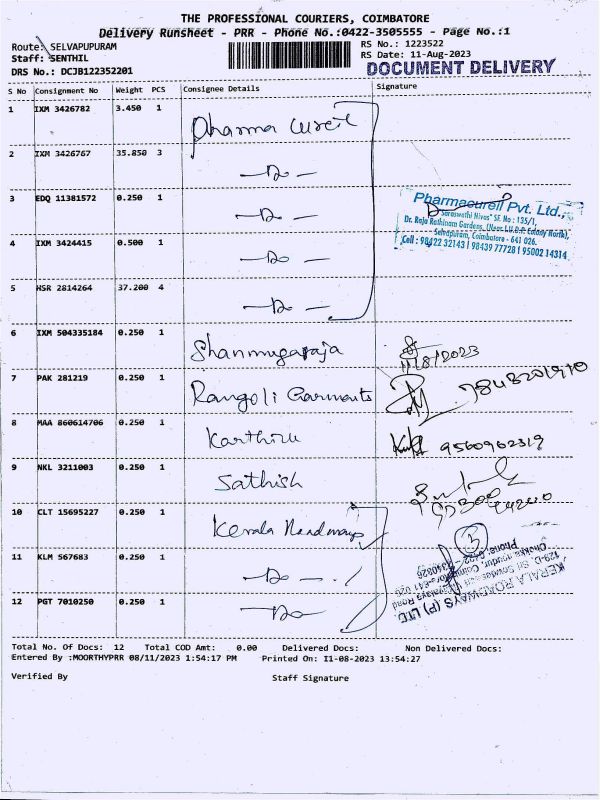 THE PROFESSIONAL COURIERS, COIMBATORE
Delivery Runsheet - PRR - Phone No.:0422-3505555 - Page No.:1
Route: SELVAPUPURAM
RS No.: 1223522
Staff: SENTHIL
RS Date: 11-Aug-2023
DRS No.: DCJB122352201
DOCUMENT DELIVERY
S No Consignment No Weight PCS Consignee Details Signature
1 IXM 3426782 3.450 1 Pharma Cureil
2 IXM 3426767 35.850 3 - Do -
3 EDQ 11381572 0.250 1 - Do -
Pharmacureil Pvt. Ltd.,
"Saraswathi Nivas" SF. No : 135/1,
Dr. Raja Rathinam Gardens, (Near I.U.D.P. Colony North),
Selvapuram, Coimbatore - 641 026.
Cell : 98422 32143 | 98439 77728 | 95002 14314
4 IXM 3424415 0.500 1 - Do -
5 HSR 2814264 37.200 4 - Do -
6 IXM 504335184 0.250 1 Shanmugaraja 11/8/2023
7 PAK 281219 0.250 1 Rangoli Garments
8 MAA 860614706 0.250 1 Karthiru 9560962319
9 NKL 3211003 0.250 1 Sathish
10 CLT 15695227 0.250 1 Kerala Roadways
11 KLM 567683 0.250 1 - Do -
12 PGT 7010250 0.250 1 - Do -
3
KERALA ROADWAYS (P) LTD.
Total No. Of Docs: 12 Total COD Amt: 0.00 Delivered Docs: Non Delivered Docs:
Entered By :MOORTHYPRR 08/11/2023 1:54:17 PM Printed On: 11-08-2023 13:54:27
Verified By Staff Signature